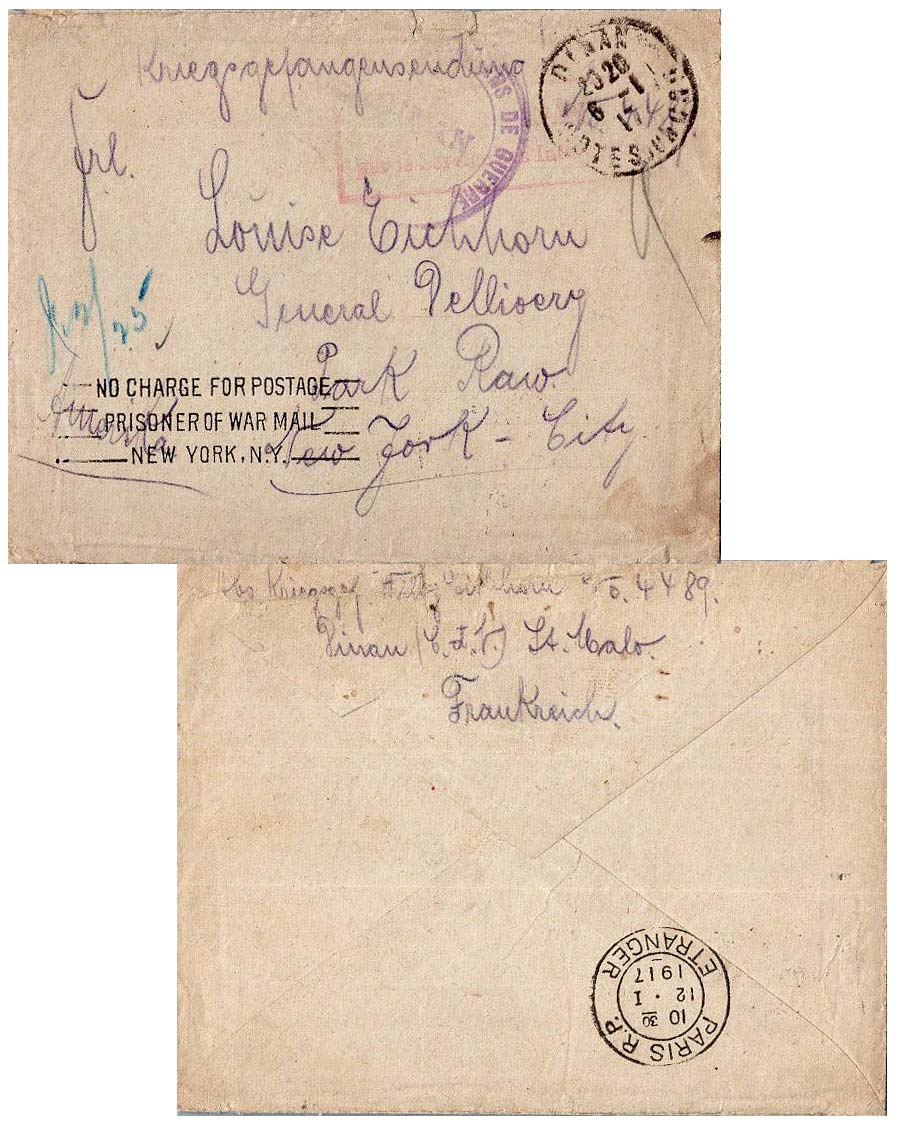 Kriegsgefangensendung!
DINAN
20 20
6 - 1
17
COTES DU NORD
NS DE GUERRE
Frl.
Louise Eichhorn
General Dellivery
Park Raw.
New York - City.
Amerika
NO CHARGE FOR POSTAGE
PRISONER OF WAR MAIL
NEW YORK, N.Y.
Abs Kriegsgef Eichhorn 4489.
Dinan (C.d.N.) St. Malo.
Frankreich.
PARIS R.P.
10 30
12 · I
1917
ETRANGER